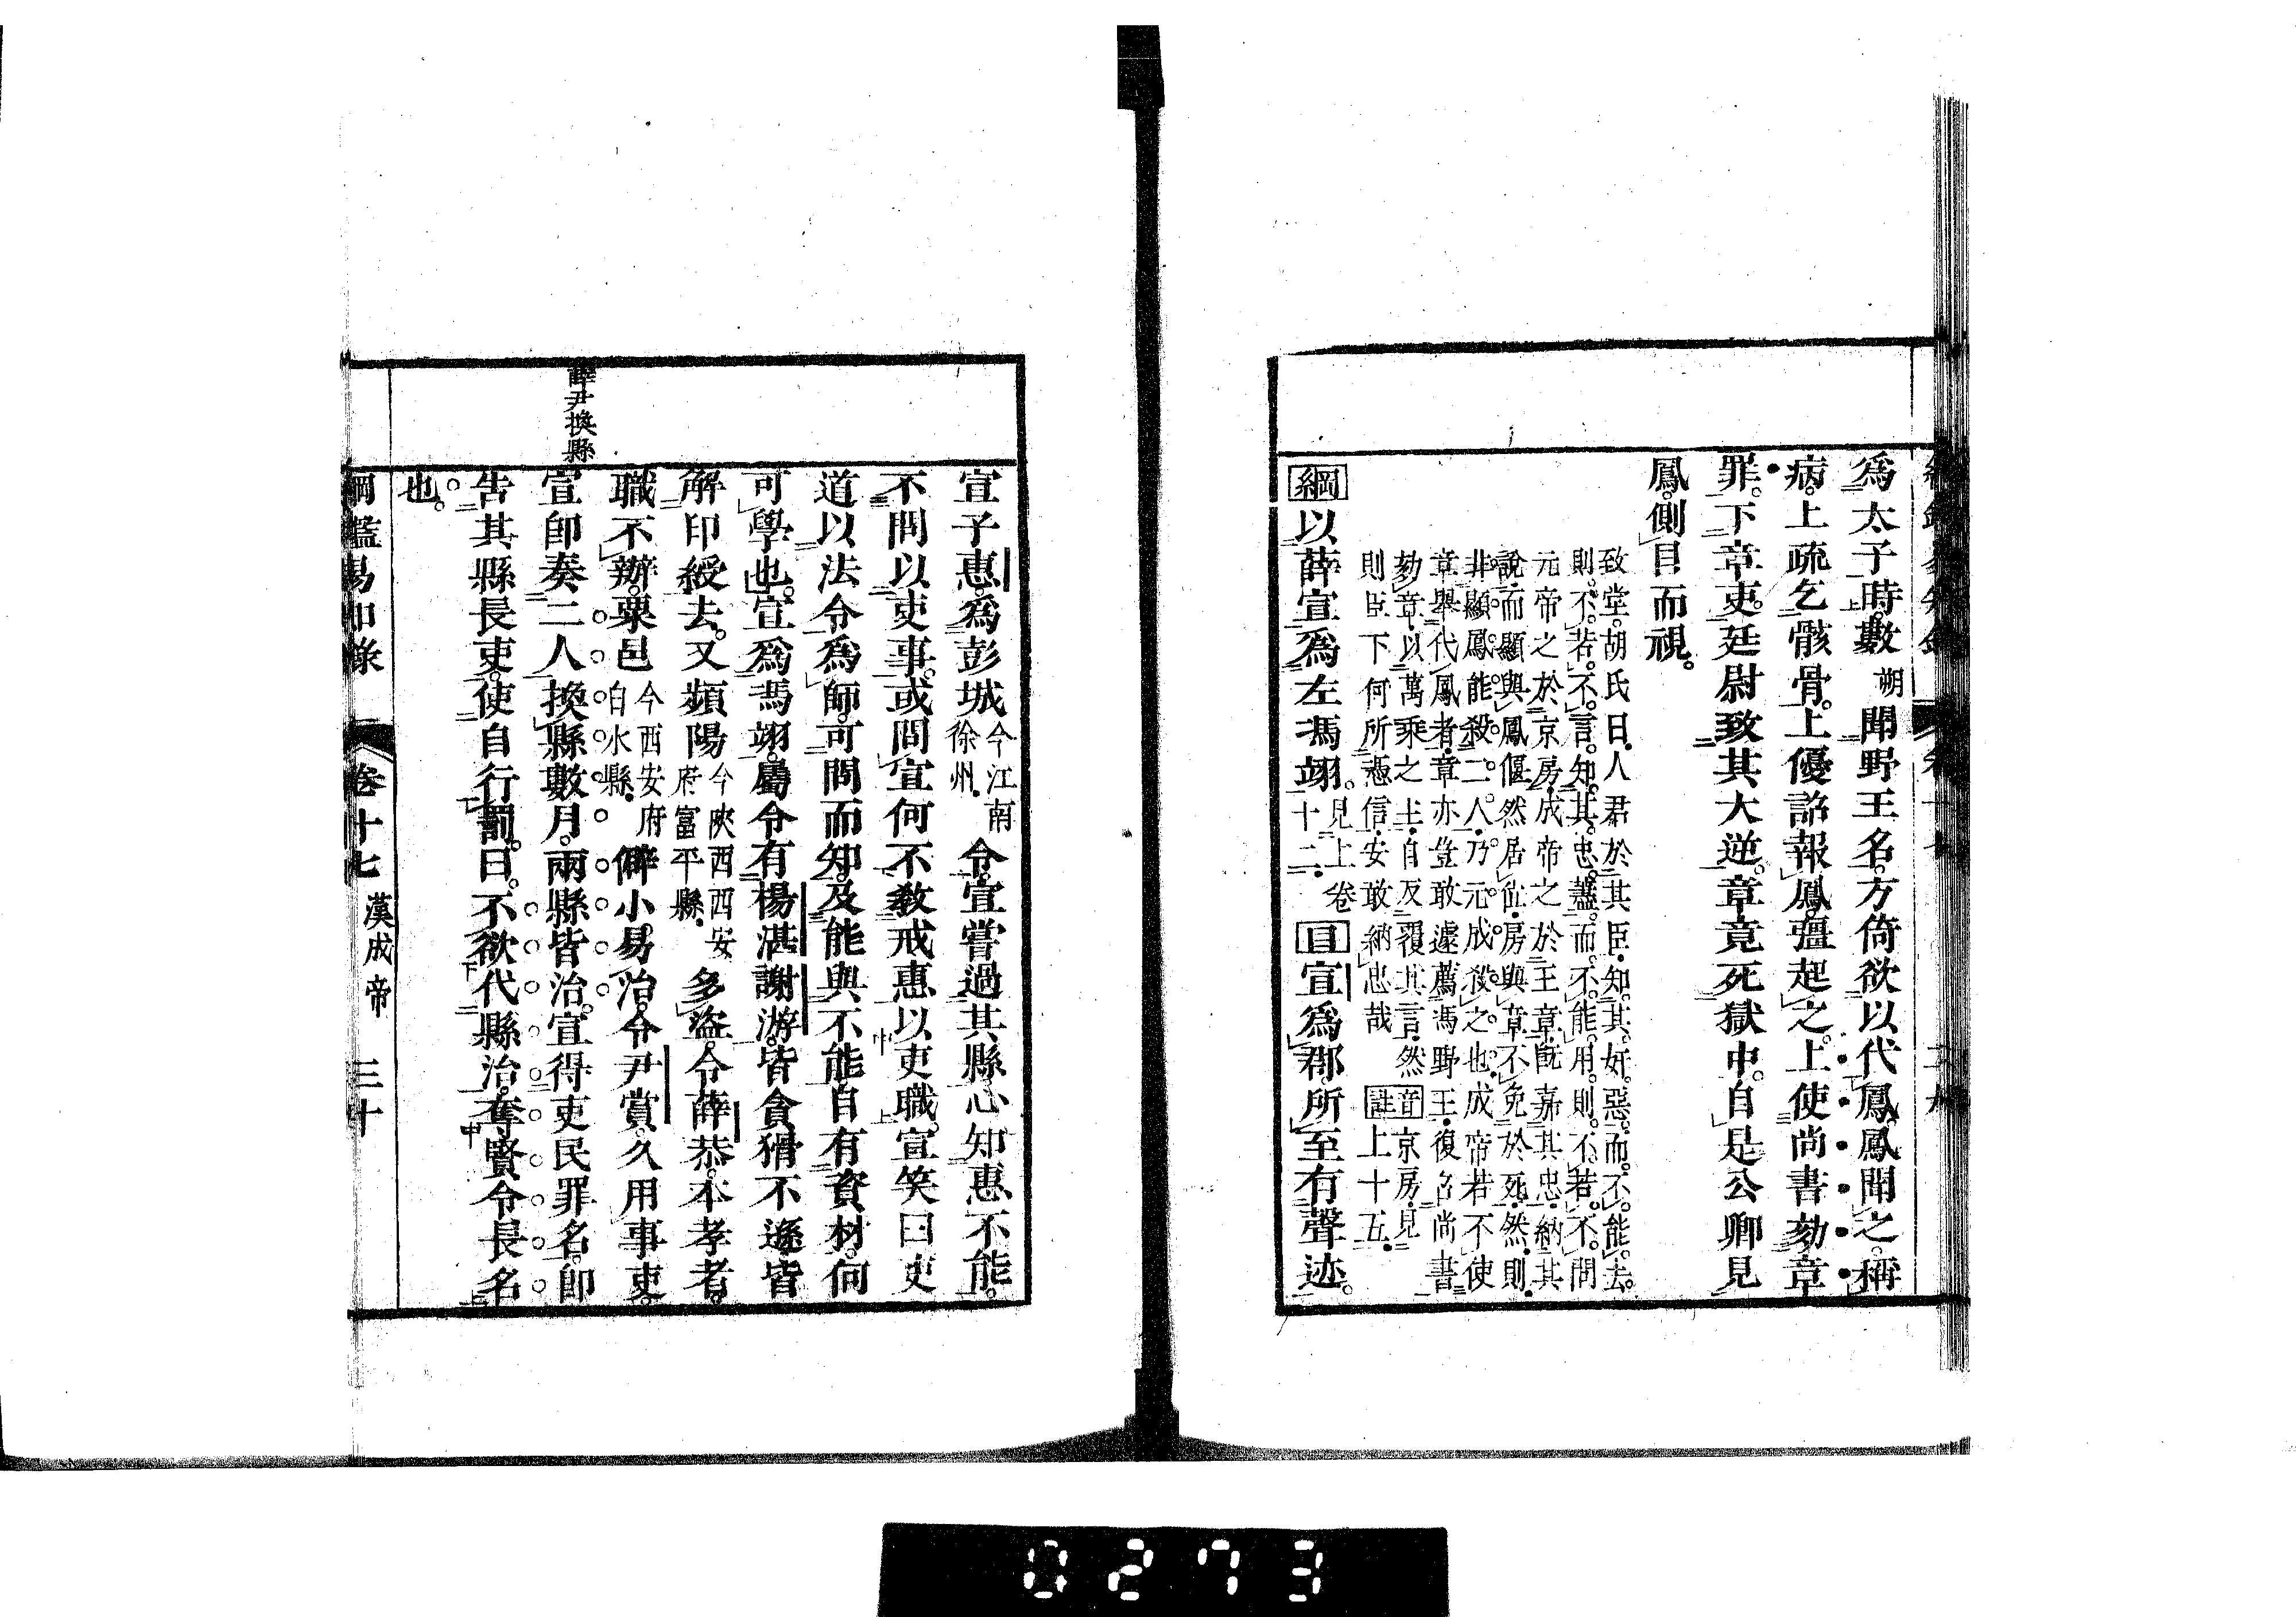 爲太子時數朔聞野王名方倚欲以代鳳鳳聞之稱
病上疏乞骸骨上優詔報鳳彊起之上使尚書劾章
罪下章吏廷尉致其大逆章竟死獄中自是公卿見
鳳側目而視
致堂胡氏曰人君於其臣知其奸惡而不能去
則不若不言知其忠藎而不能用則不若不問
元帝之於京房成帝之於王章旣嘉其忠納其
說而顯與鳳偃然居位房與章不免於死然則
非顯鳳能殺二人乃元成殺之也成帝若不使
章舉代鳳者章亦豈敢遽薦馮野王復名尚書
劾章以萬乘之主自反覆其言然
則臣下何所憑信安敢納忠哉
音註
京房見
上十五
綱以薛宣爲左馮翊見上卷十二目宣爲郡所至有聲迹
宣子惠爲彭城今江南徐州令宣嘗過其縣心知惠不能
不問以吏事或問宣何不教戒惠以吏職宣笑曰吏
道以法令爲師可問而知及能與不能自有資材何
可學也宣爲馮翊屬令有楊湛謝游皆貪猾不遜皆
解印綬去又頻陽今陝西西安府富平縣多盜令薛恭本孝者
職不辦粟邑今西安府白水縣僻小易治令尹賞久用事吏
宣卽奏二人換縣數月兩縣皆治宣得吏民罪名卽
告其縣長吏使自行罰曰不欲代縣治奪賢令長名
也
薛尹換縣
綱鑑易知錄 卷十七 漢成帝 三十
0273